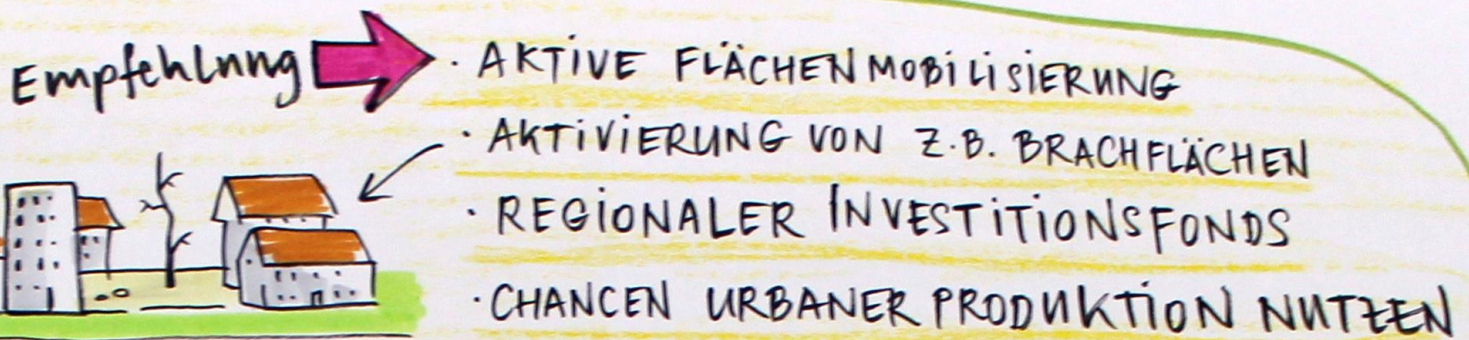 Empfehlung
· AKTIVE FLÄCHENMOBILISIERUNG
· AKTIVIERUNG VON Z.B. BRACHFLÄCHEN
· REGIONALER INVESTITIONSFONDS
· CHANCEN URBANER PRODUKTION NUTZEN